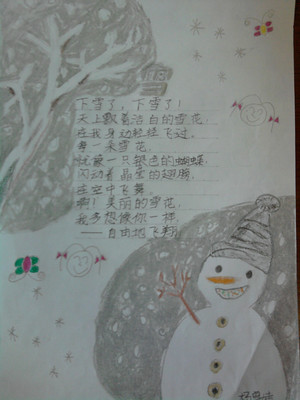 下雪了，下雪了！
天上飘着洁白的雪花，
在我身边轻轻飞过。
每一朵雪花，
就像一只银色的蝴蝶，
闪动着晶莹的翅膀，
在空中飞舞。
啊！美丽的雪花，
我多想像你一样，
——自由地飞翔！